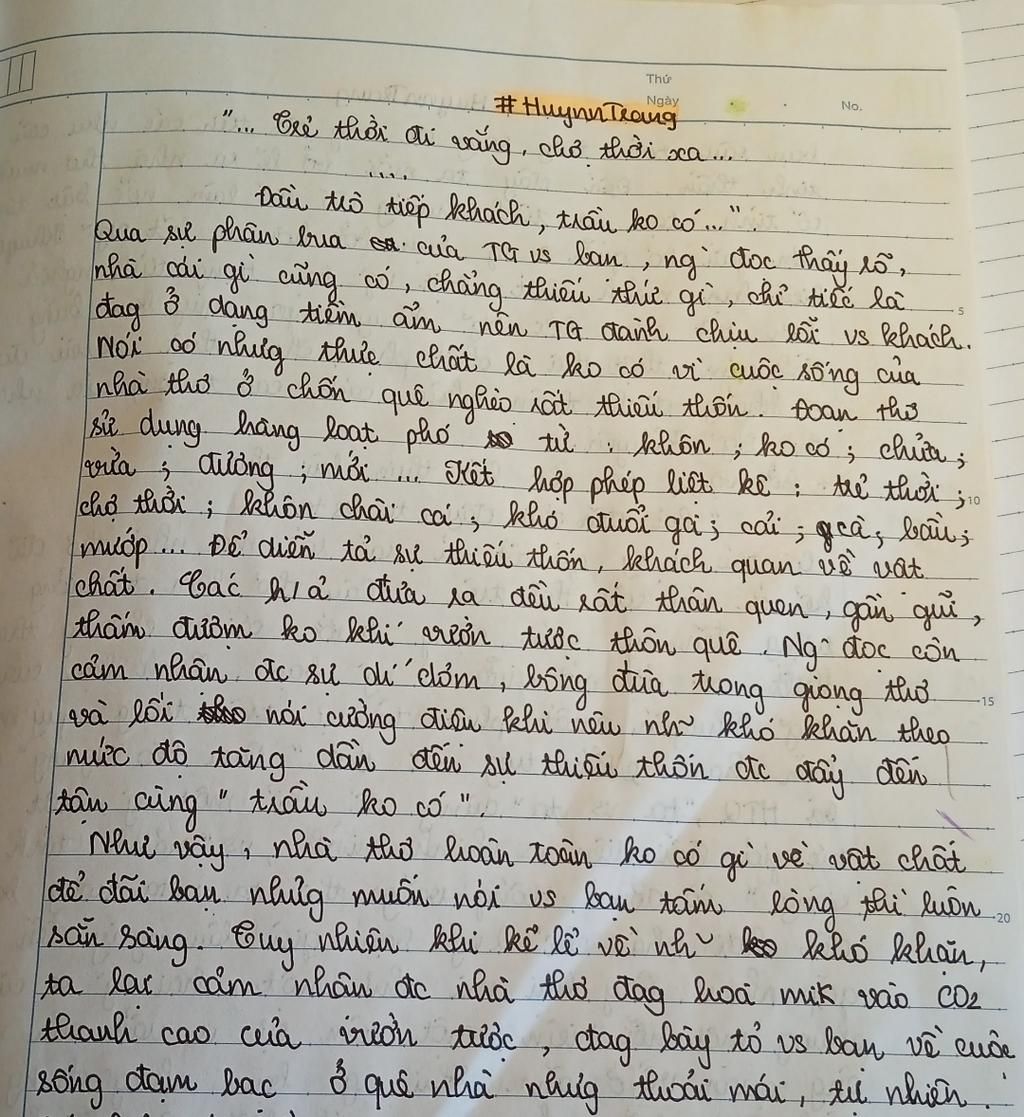 Thứ
Ngày
No.
#HuynnTrang
"... Trẻ thời đi vắng, chợ thời xa...
....
Đầu trò tiếp khách, trầu ko có...".
Qua sự phân bua của TG vs bạn, ng` đọc thấy rõ,
nhà cái gì cũng có, chẳng thiếu thứ gì, chỉ tiếc là
5
đag ở dạng tiềm ẩm nên TG đành chịu lỗi vs khách.
Nói có nhưg thực chất là ko có vì cuộc sống của
nhà thơ ở chốn quê nghèo rất thiếu thốn. Đoạn thơ
sử dụng hàng loạt phó từ : khôn ; ko có ; chửa ;
vừa ; đương ; mới ... Kết hợp phép liệt kê : trẻ thời ;
10
chợ thời ; khôn chài cá ; khó đuổi gà ; cải ; cà ; bầu ;
mướp... Để diễn tả sự thiếu thốn, khách quan về vật
chất. Các h/ả đưa ra đều rất thân quen, gần gũi,
thấm đượm ko khí vườn tược thôn quê. Ng` đọc còn
cảm nhận đc sự dí dỏm, bông đùa trong giọng thơ
15
và lối nói cường điệu khi nêu nh~ khó khăn theo
mức độ tăng dần đến sự thiếu thốn đc đẩy đến
tận cùng " trầu ko có ".
Như vậy, nhà thơ hoàn toàn ko có gì về vật chất
để đãi bạn nhưg muốn nói vs bạn tấm lòng thì luôn
20
sẵn sàng. Tuy nhiên khi kể lể về nh~ khó khăn,
ta lại cảm nhận đc nhà thơ đag hoà mik vào CO2
thanh cao của vườn tược, đag bày tỏ vs bạn về cuộc
sống đạm bạc ở quê nhà nhưg thoải mái, tự nhiên.